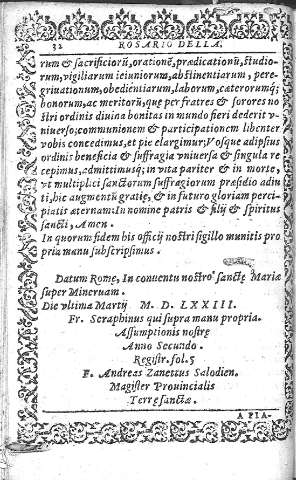 32 ROSARIO DELLA,
rum & sacrificiorũ, orationẽ, prædicationũ, studio-
rum, vigiliarum ieiuniorum, abstinentiarum, pere-
grinationum, obedientiarum, laborum, cæterorumq;
bonorum, ac meritorũ, quę per fratres & sorores no
stri ordinis diuina bonitas in mundo fieri dederit v-
niuerso; communionem & participationem libenter
vobis concedimus, et pie elargimur; Vosque adipsius
ordinis beneficia & suffragia vniuersa & singula re
cepimus, admittimusq; in vita pariter & in morte,
vt multiplici sanctorum suffragiorum præsidio adiu
ti, hic augmentũ gratię, & in futuro gloriam perci-
piatis æternam: In nomine patris & filij & spiritus
sancti, Amen.
In quorum fidem his officij nostri sigillo munitis pro
pria manu subscripsimus.
Datum Romę, In conuentu nostro sanctę Mariæ
super Mineruam.
Die vltima Martij M. D. LXXIII.
Fr. Seraphinus qui supra manu propria.
Assumptionis nostrę
Anno Secundo.
Registr. fol. 5
F. Andreas Zanettus Salodien.
Magister Prouincialis
Terręsanctæ.
A PIA-